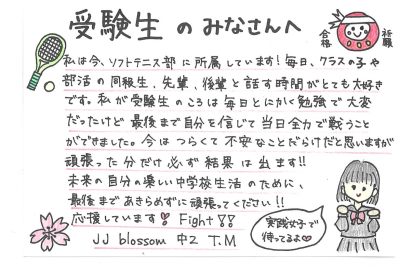 受験生のみなさんへ
合格
祈願
私は今、ソフトテニス部に所属しています!毎日、クラスの子や
部活の同級生、先輩、後輩と話す時間がとても大好き
です。私が受験生のころは毎日とにかく勉強で大変
だったけど最後まで自分を信じて当日全力で戦うこと
ができました。今はつらくて不安なことだらけだと思いますが
頑張った分だけ必ず結果は出ます!!
未来の自分の楽しい中学校生活のために、
最後まであきらめずに頑張ってください!!
応援しています! Fight!!
JJ blossom 中2 T.M
実践女子で
待ってるよ♡